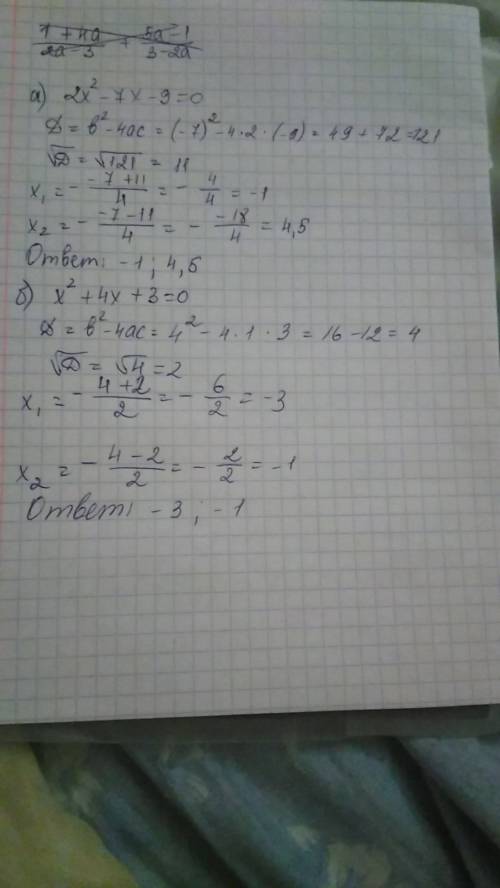 (1 + 4a)/(2a - 3) + (5a - 1)/(3 - 2a)
а) 2x² - 7x - 9 = 0
D = b² - 4ac = (-7)² - 4·2·(-9) = 49 + 72 = 121
√D = √121 = 11
x₁ = - (-7 + 11)/4 = - 4/4 = -1
x₂ = - (-7 - 11)/4 = - (-18)/4 = 4,5
Ответ: -1 ; 4,5
б) x² + 4x + 3 = 0
D = b² - 4ac = 4² - 4·1·3 = 16 - 12 = 4
√D = √4 = 2
x₁ = - (4 + 2)/2 = - 6/2 = -3
x₂ = - (4 - 2)/2 = - 2/2 = -1
Ответ: -3 ; -1